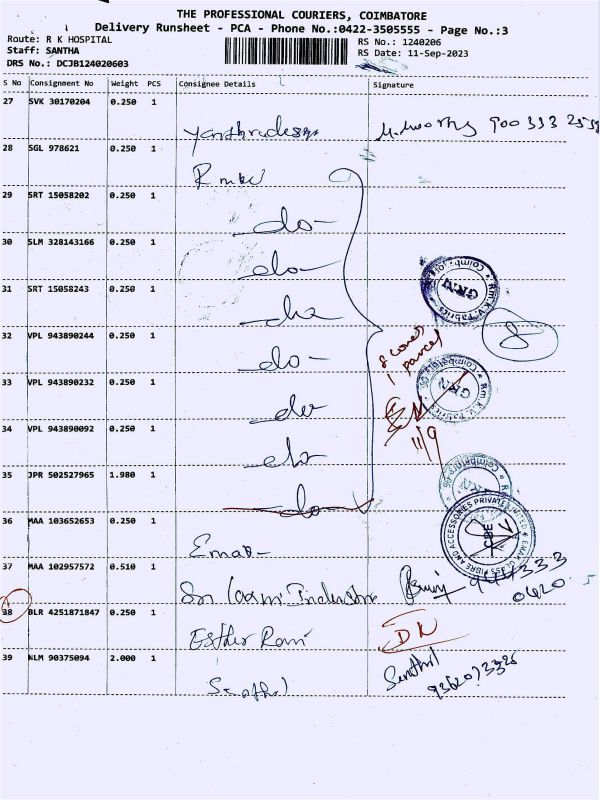 THE PROFESSIONAL COURIERS, COIMBATORE
Delivery Runsheet - PCA - Phone No.:0422-3505555 - Page No.:3
Route: R K HOSPITAL
RS No.: 1240206
Staff: SANTHA
RS Date: 11-Sep-2023
DRS No.: DCJB124020603
S No Consignment No Weight PCS Consignee Details Signature
27 SVK 30170204 0.250 1
28 SGL 978621 0.250 1
29 SRT 15058202 0.250 1
do-
30 SLM 328143166 0.250 1
do-
31 SRT 15058243 0.250 1
32 VPL 943890244 0.250 1
do-
8
33 VPL 943890232 0.250 1
1 parcel
34 VPL 943890092 0.250 1
11/9
35 JPR 502527965 1.980 1
do
36 MAA 103652653 0.250 1
Emas-
37 MAA 102957572 0.510 1
Sri
38 BLR 4251871847 0.250 1
Esther Rani
39 NLM 90375094 2.000 1
Senthil
Senthil
Rm.K.V. Fabrics
Coimbatore
GRN
EMAS GLASS FIBRE AND ACCESSORIES PRIVATE LIMITED
CBE